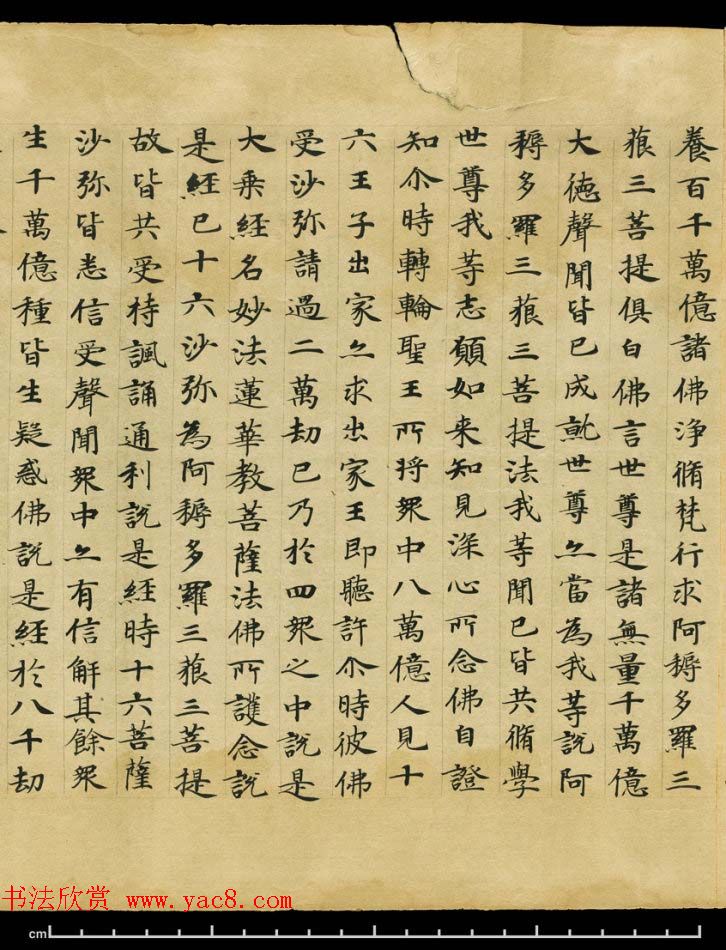 養百千萬億諸佛淨脩梵行求阿耨多羅三
藐三菩提俱白佛言世尊是諸無量千萬億
大德聲聞皆已成就世尊亦當為我等說阿
耨多羅三藐三菩提法我等聞已皆共脩學
世尊我等志願如來知見深心所念佛自證
知尒時轉輪聖王所將衆中八萬億人見十
六王子出家亦求出家王即聽許尒時彼佛
受沙弥請過二萬劫已乃於四衆之中說是
大乘經名妙法蓮華教菩薩法佛所護念說
是經已十六沙弥為阿耨多羅三藐三菩提
故皆共受持諷誦通利說是經時十六菩薩
沙弥皆悉信受聲聞衆中亦有信解其餘衆
生千萬億種皆生疑惑佛說是經於八千劫
书法欣赏 www.yac8.com
cm